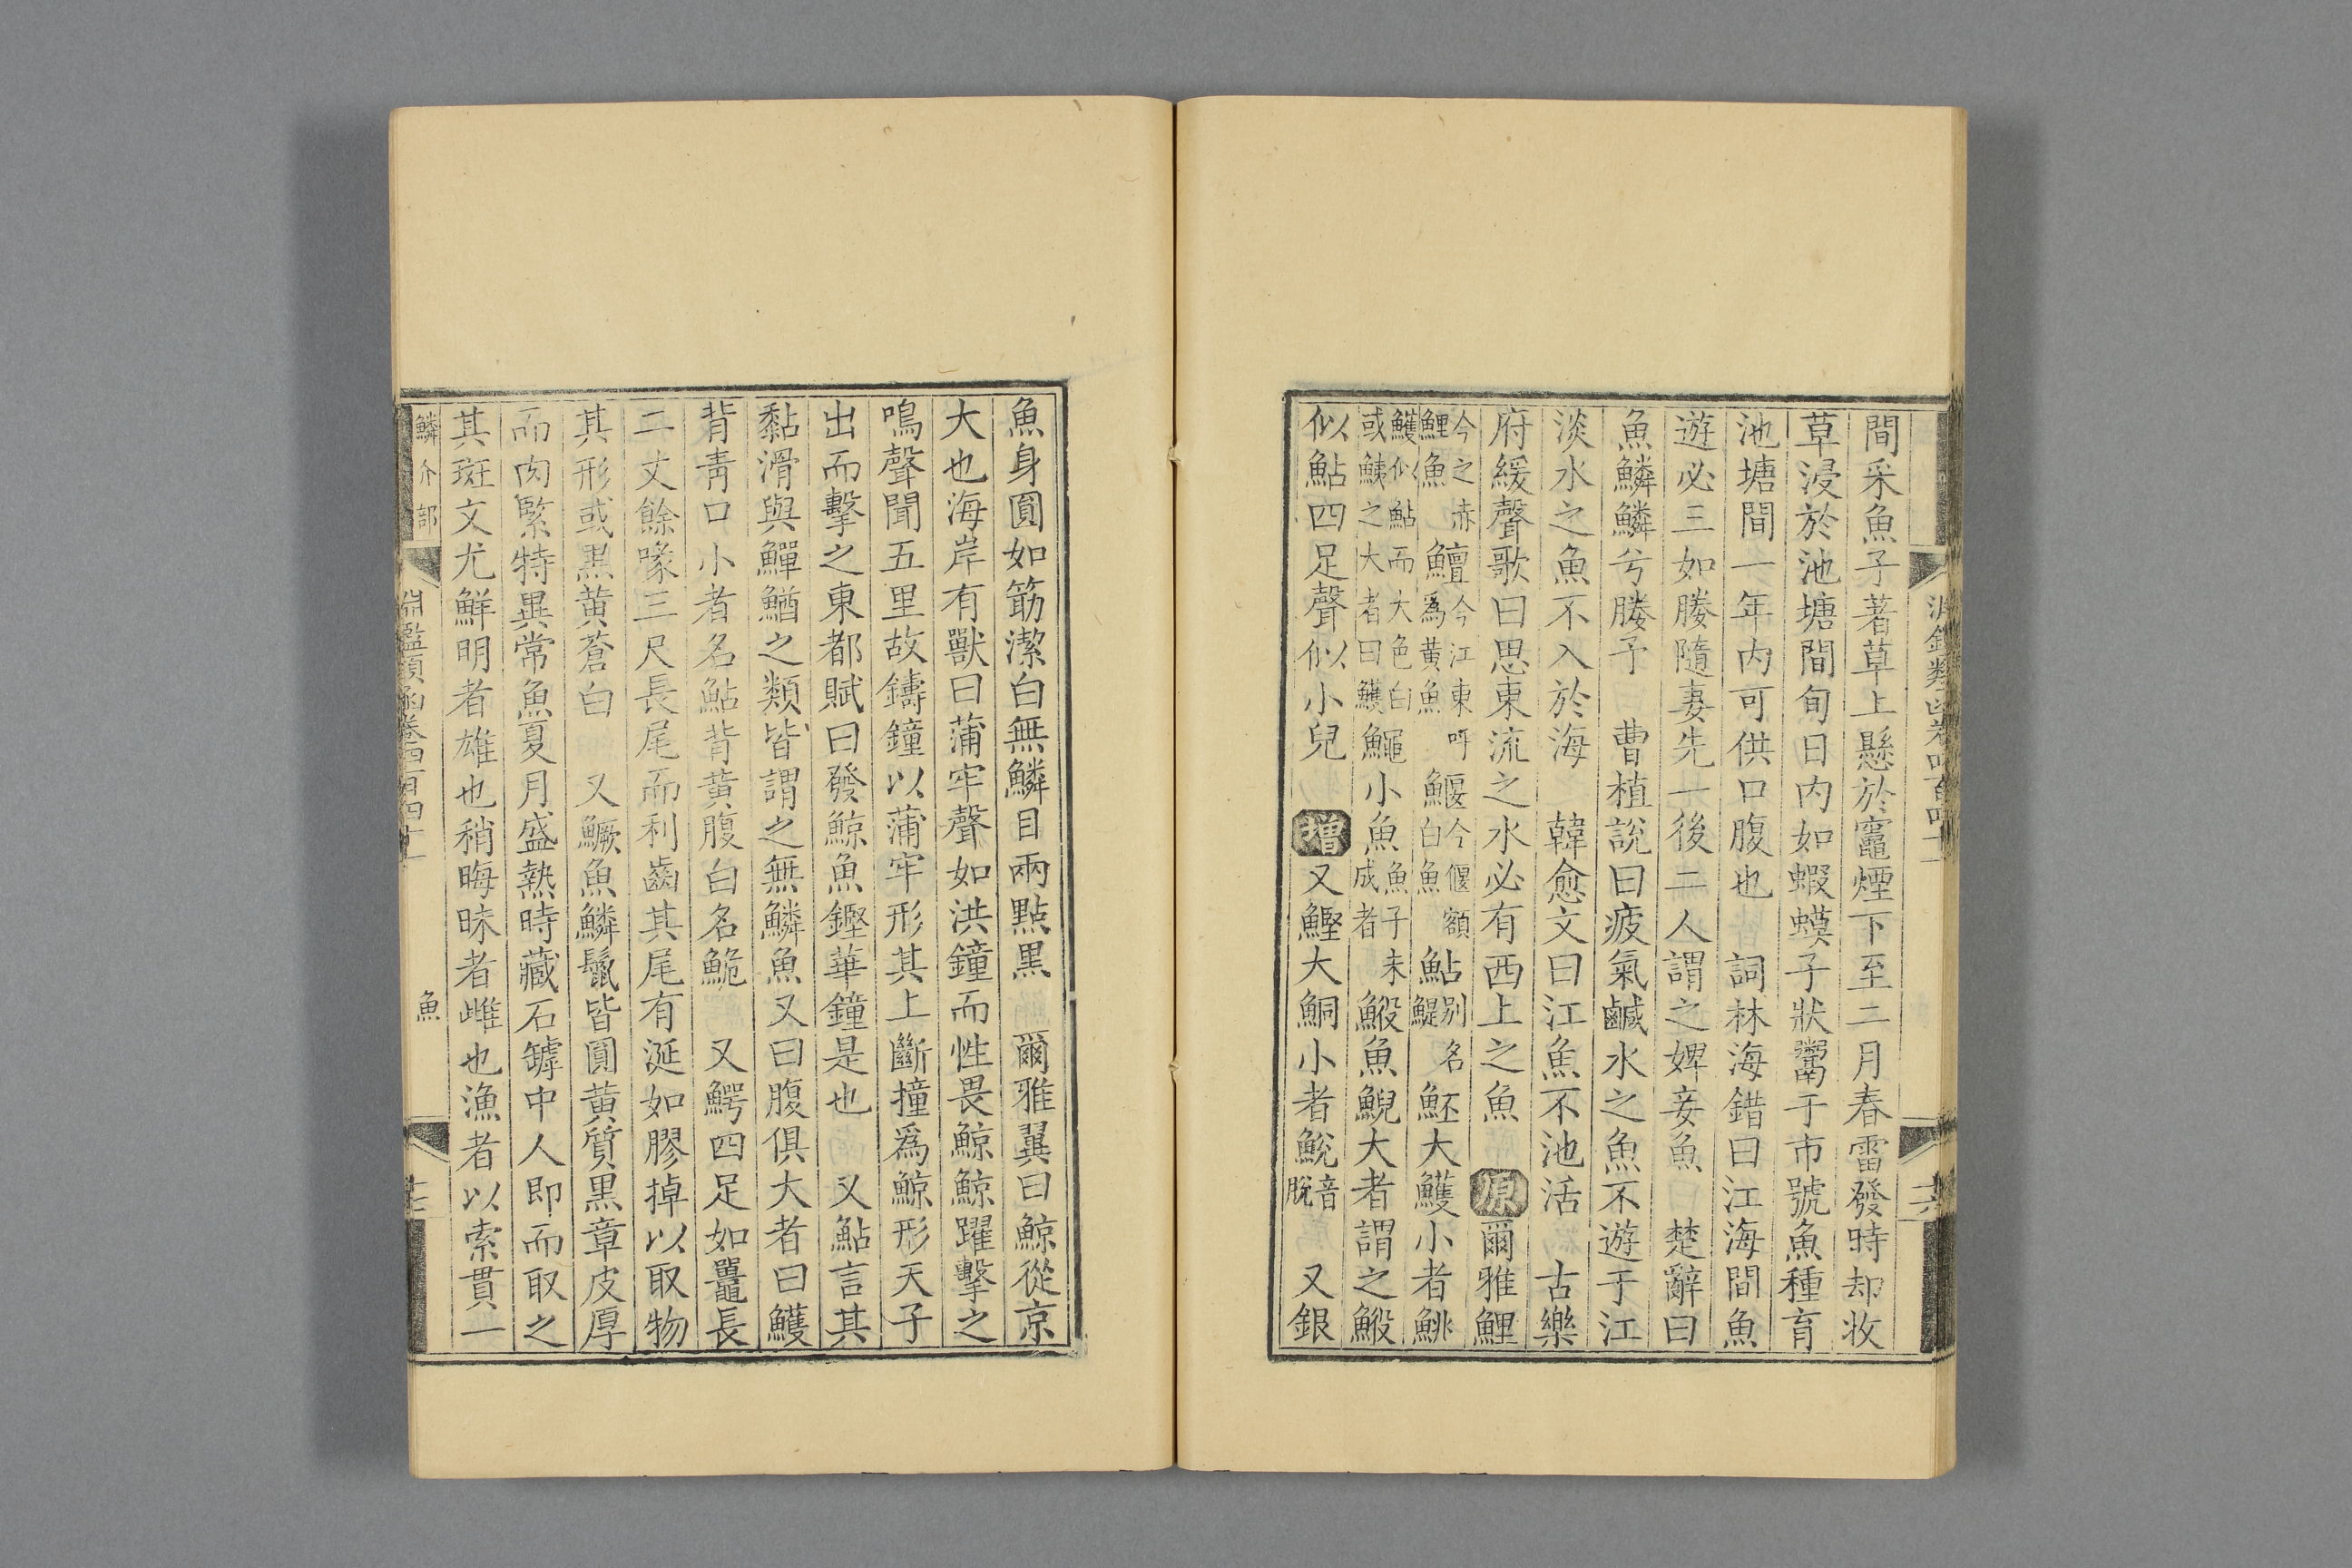 間采魚子著草上懸於竈煙下至二月春雷發時却收
草浸於池塘間旬日内如蝦蟆子狀鬻于市號魚種育
池塘間一年内可供口腹也 詞林海錯曰江海間魚
遊必三如媵隨妻先一後二人謂之婢妾魚 楚辭曰
魚鱗鱗兮媵予 曹植説曰疲氣鹹水之魚不遊于江
淡水之魚不入於海 韓愈文曰江魚不池活 古樂
府緩聲歌曰思東流之水必有西上之魚 原爾雅鯉
今之赤鯉魚鱣今江東呼爲黃魚鰋今偃額白魚鮎别名鯷魾大鱯小者鮡
鱯似鮎而大色白或鮧之大者曰鱯鱦小魚魚子未成者鮻魚鯢大者謂之鰕
似鮎四足聲似小兒 增又鰹大鮦小者鮵音脫 又銀
魚身圓如筯潔白無鱗目兩點黒 爾雅翼曰鯨從京
大也海岸有獸曰蒲牢聲如洪鐘而性畏鯨鯨躍擊之
鳴聲聞五里故鑄鐘以蒲牢形其上斵撞爲鯨形天子
出而擊之東都賦曰發鯨魚鏗華鐘是也 又鮎言其
黏滑與鱓鰌之類皆謂之無鱗魚又曰腹俱大者曰鱯
背靑口小者名鮎背黄腹白名鮠 又鰐四足如鼉長
二丈餘喙三尺長尾而利齒其尾有涎如膠掉以取物
其形或黒黄蒼白 又鱖魚鱗鬛皆圓黄質黒章皮厚
而肉緊特異常魚夏月盛熱時藏石罅中人即而取之
其斑文尤鮮明者雄也稍晦昧者雌也漁者以索貫一
鱗介部
淵鑑類函卷四百四十一
魚